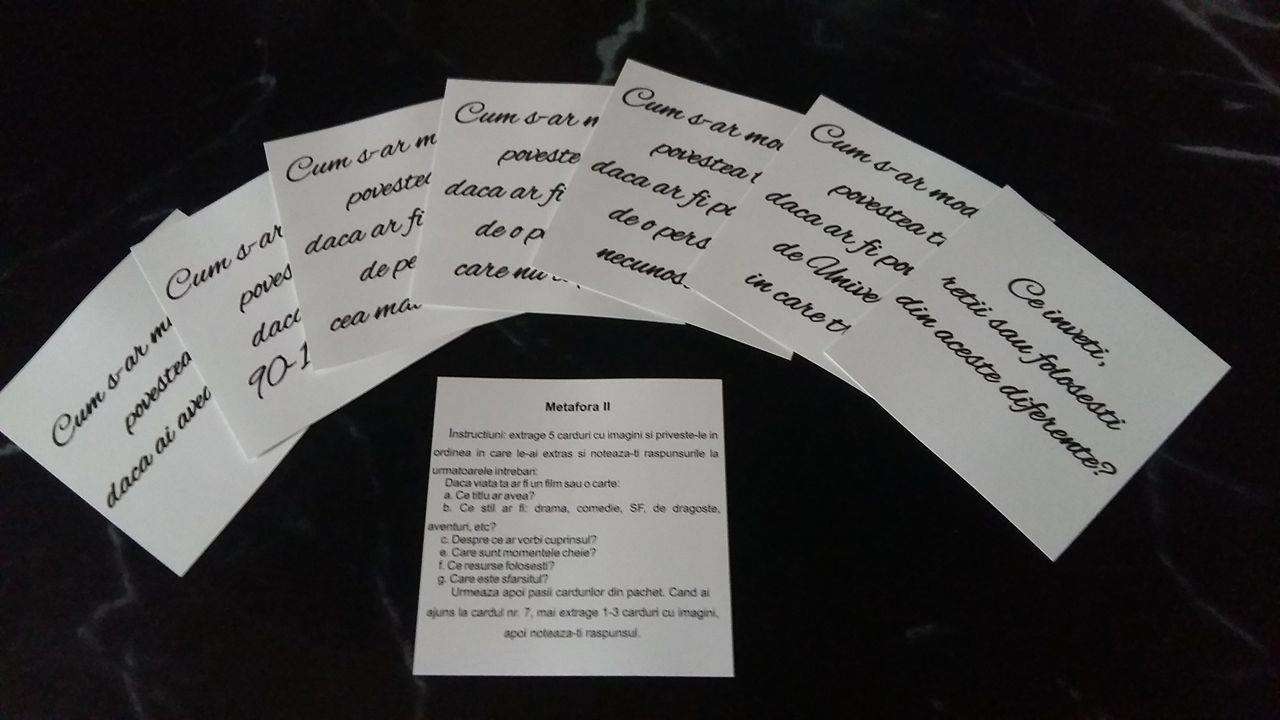 Cum s-ar
povestea
daca ai
Cum s-ar
daca
90-1
Cum s-ar
daca ar fi
de
cea
Cum s-ar
daca ar fi
de o
care nu
Cum s-ar
povestea
daca ar fi
de o
Cum s-ar
povestea
daca ar fi
de
in care
Ce inveti,
retii sau folosesti
din aceste diferente?
Metafora II
Instructiuni: extrage 5 carduri cu imagini si priveste-le in
ordinea in care le-ai extras si noteaza-ti raspunsurile la
urmatoarele intrebari:
Daca viata ta ar fi un film sau o carte:
a. Ce titlu ar avea?
b. Ce stil ar fi: drama, comedie, SF, de dragoste,
aventuri, etc?
c. Despre ce ar vorbi cuprinsul?
e. Care sunt momentele cheie?
f. Ce resurse folosesti?
g. Care este sfarsitul?
Urmeaza apoi pasii cardurilor din pachet. Cand ai
ajuns la cardul nr. 7, mai extrage 1-3 carduri cu imagini,
apoi noteaza-ti raspunsul.